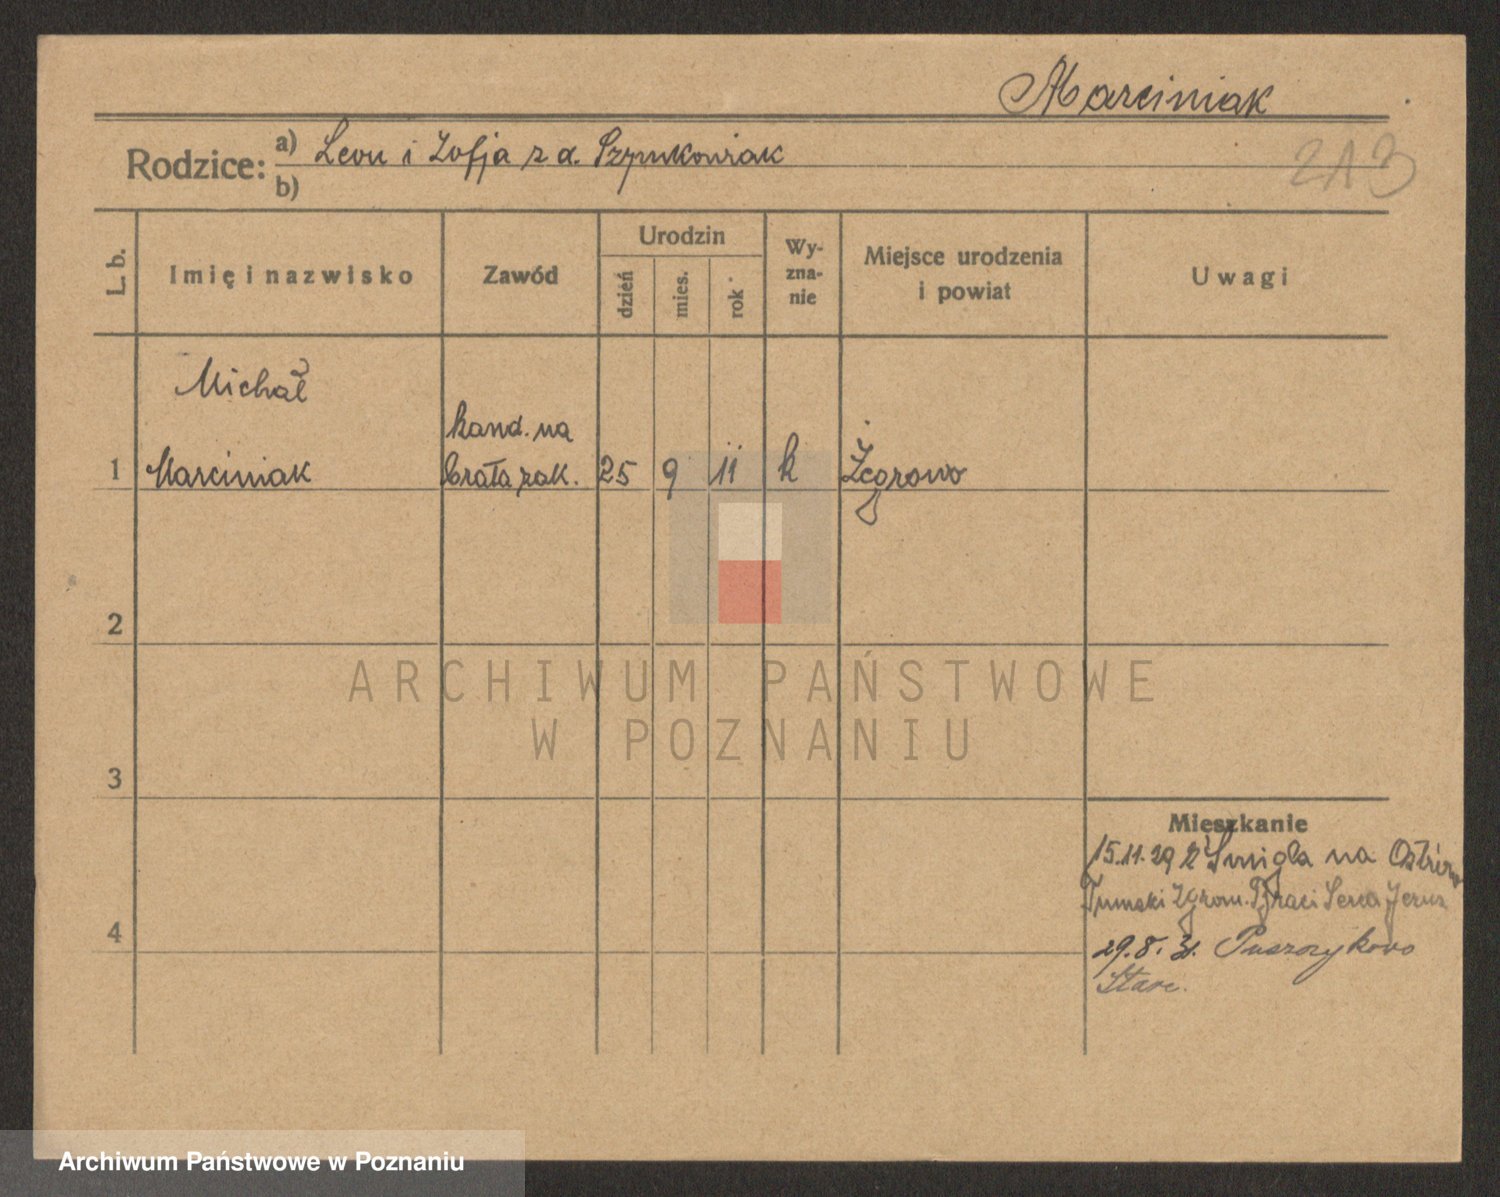 Marciniak
Rodzice: a) Leon i Zofja z d. Szymkowiak
213
b)
L. b.
Imię i nazwisko
Zawód
Urodzin
dzień
mies.
rok
Wy-
zna-
nie
Miejsce urodzenia
i powiat
Uwagi
Michał
kand. na
1 Marciniak brata zak. 25 9 11 k Żegrowo
2
ARCHIWUM PAŃSTWOWE
W POZNANIU
3
Mieszkanie
15.11.29 z Śmigla na Ostrów
Tumski Zgrom. Braci Serca Jezus
4
29.8.31. Puszczykowo
Stare.
Archiwum Państwowe w Poznaniu